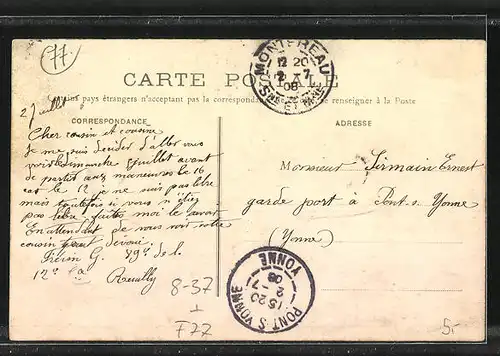 77
CARTE POSTALE
pays étrangers n'acceptant pas la correspondance
se renseigner à la Poste
CORRESPONDANCE
ADRESSE
MONTEREAU
12 20
2 - 7
08
SNE ET MNE
2 Juillet
Cher cousin et cousine
Je me suis décider d'aller vous
voir dimanche Juillet avant
de partir aux manœuvres le 16
car le 12 je ne suis pas libre
mais toutefois si vous n'êtiez
pas libre faites moi le savoir
En attendant de vous voir votre
cousin dévoué
G. 89e de l.
12e Cie Reuilly
Monsieur Sirmain Ernest
garde port à Pont s. Yonne
(Yonne)
PONT S YONNE
15 20
2 - 7
08
YONNE
8-37
F77
5.-